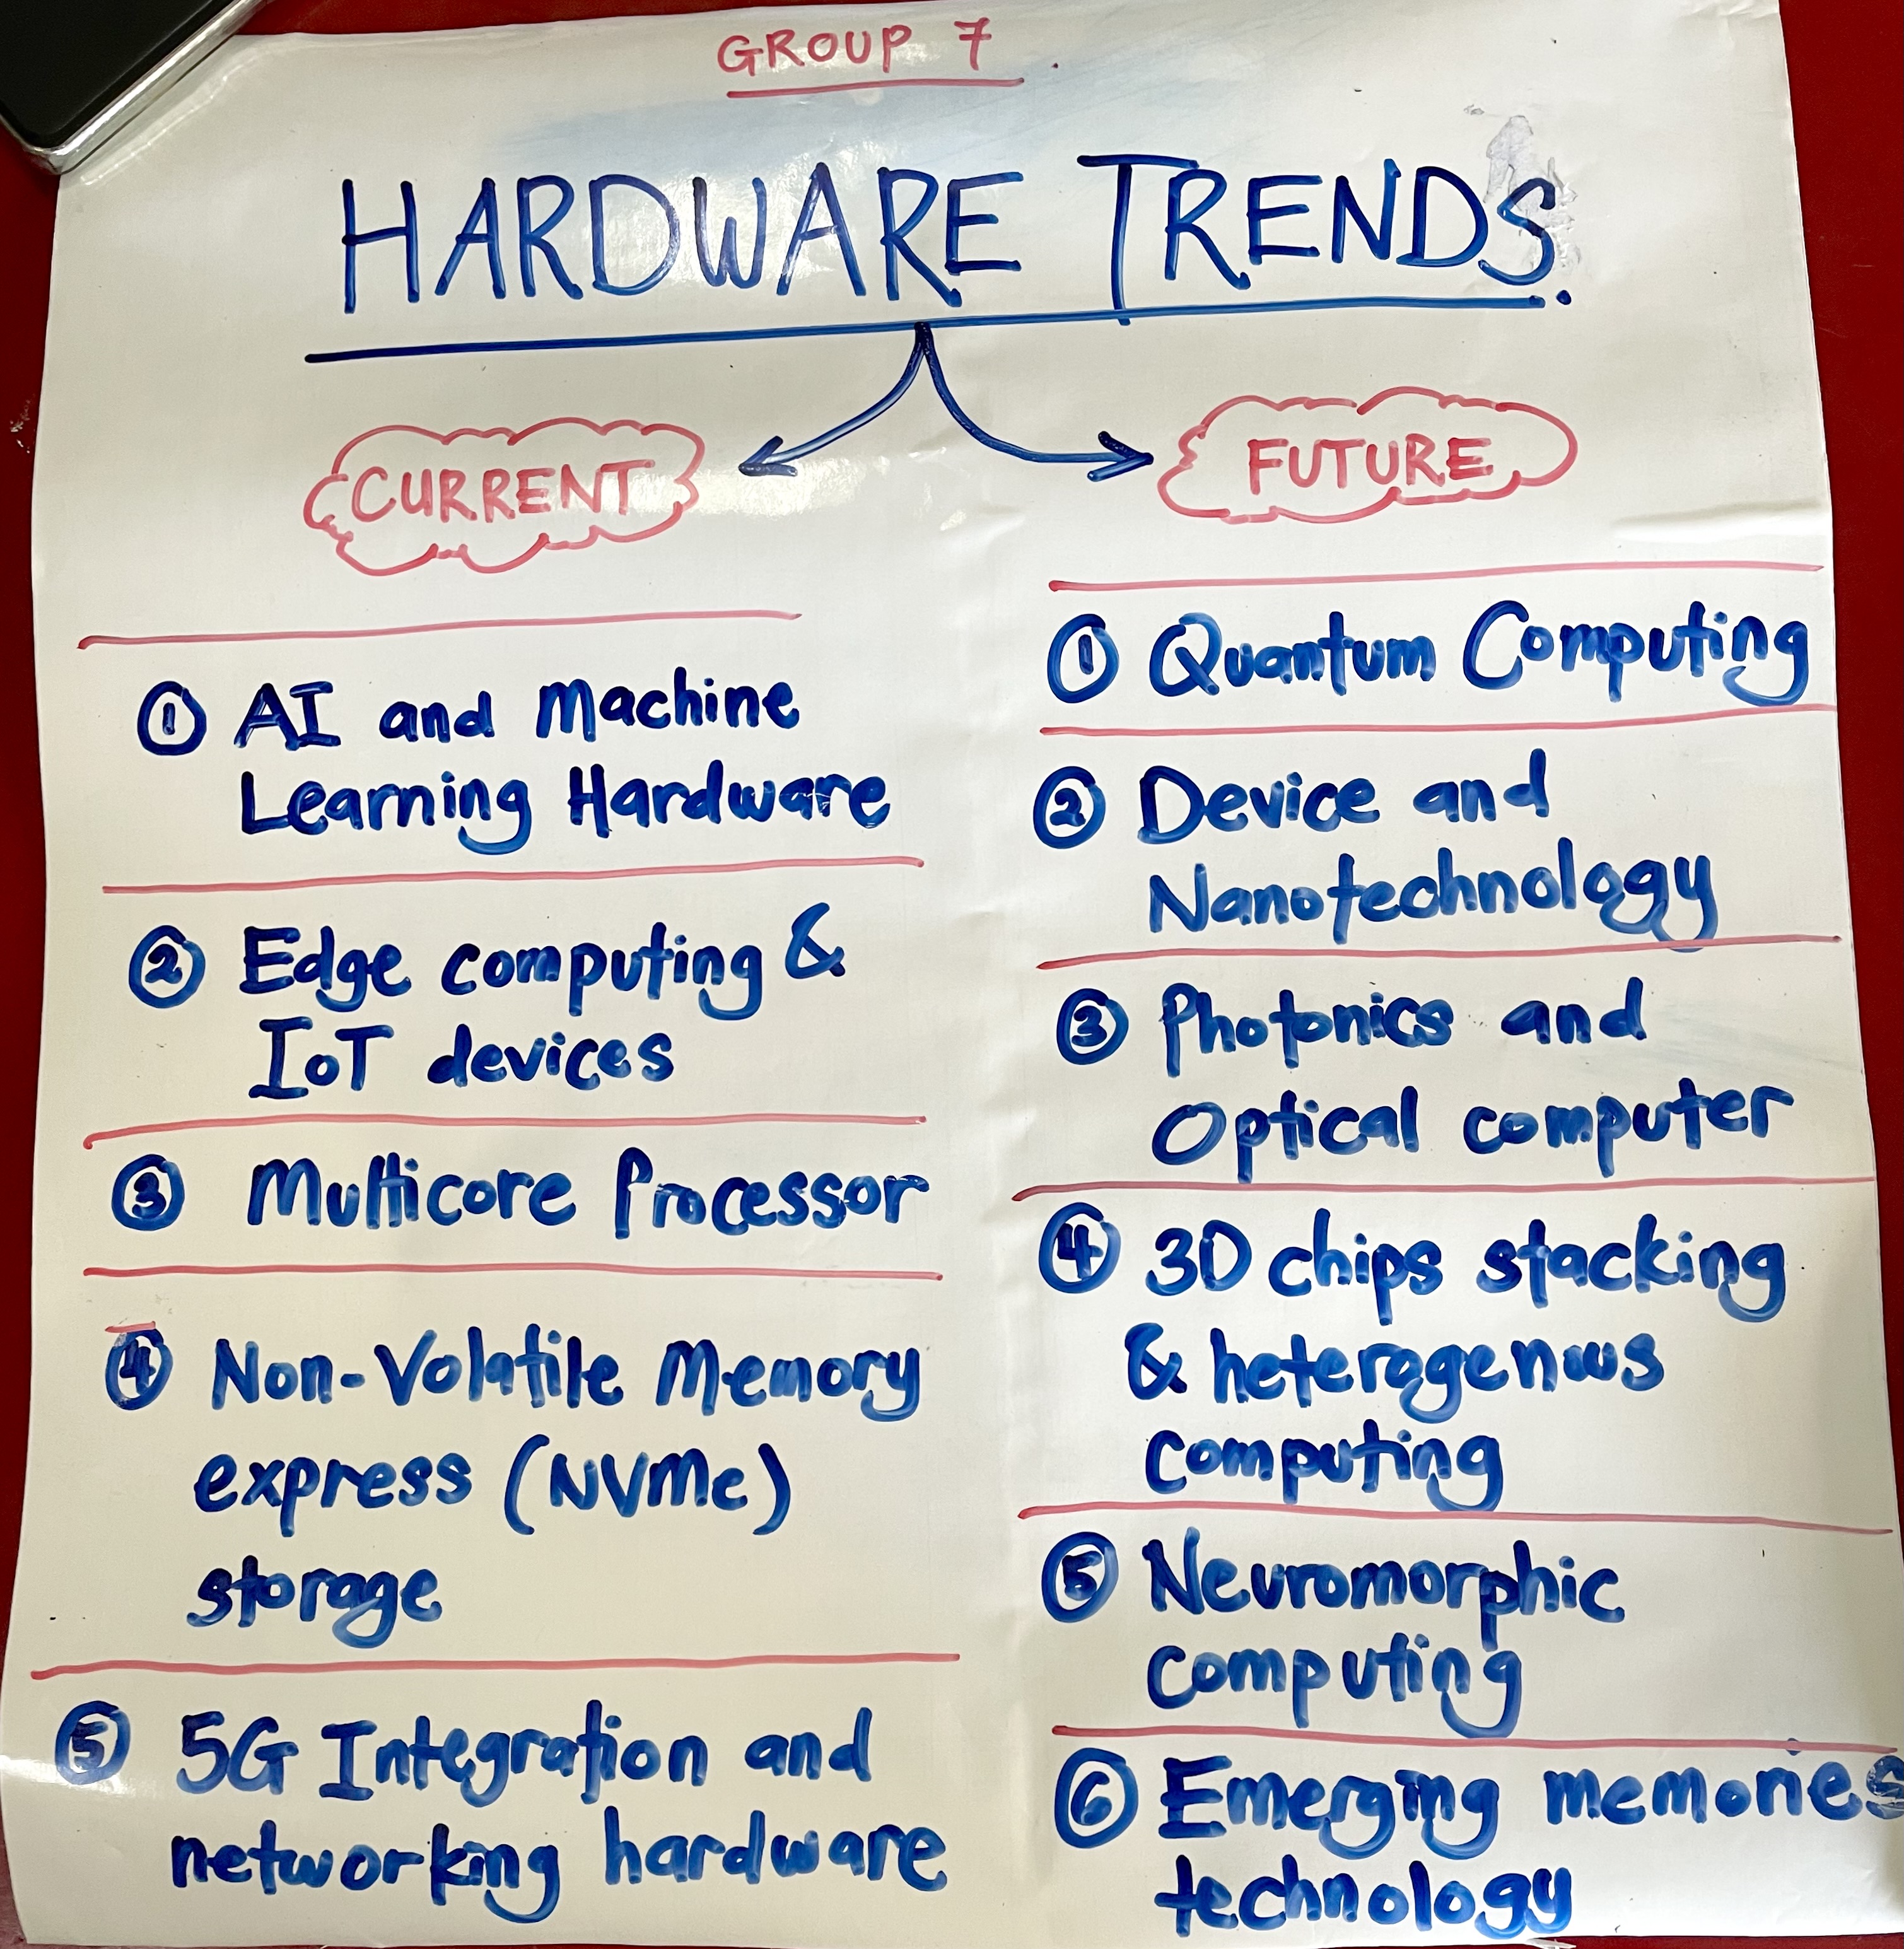 GROUP 7
HARDWARE TRENDS.
CURRENT
① AI and Machine
Learning Hardware
② Edge computing &
IoT devices
③ Multicore Processor
④ Non-Volatile Memory
express (NVMe)
storage
⑤ 5G Integration and
networking hardware
FUTURE
① Quantum Computing
② Device and
Nanotechnology
③ Photonics and
Optical computer
④ 3D chips stacking
& heterogenous
computing
⑤ Neuromorphic
computing
⑥ Emerging memories
technology